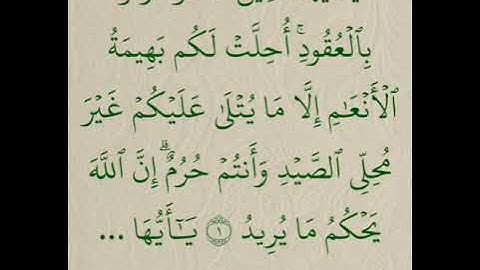 بِٱلْعُقُودِ ۚ أُحِلَّتْ لَكُم بَهِيمَةُ
ٱلْأَنْعَـٰمِ إِلَّا مَا يُتْلَىٰ عَلَيْكُمْ غَيْرَ
مُحِلِّى ٱلصَّيْدِ وَأَنتُمْ حُرُمٌ ۗ إِنَّ ٱللَّهَ
يَحْكُمُ مَا يُرِيدُ ۝١ يَـٰٓأَيُّهَا ...